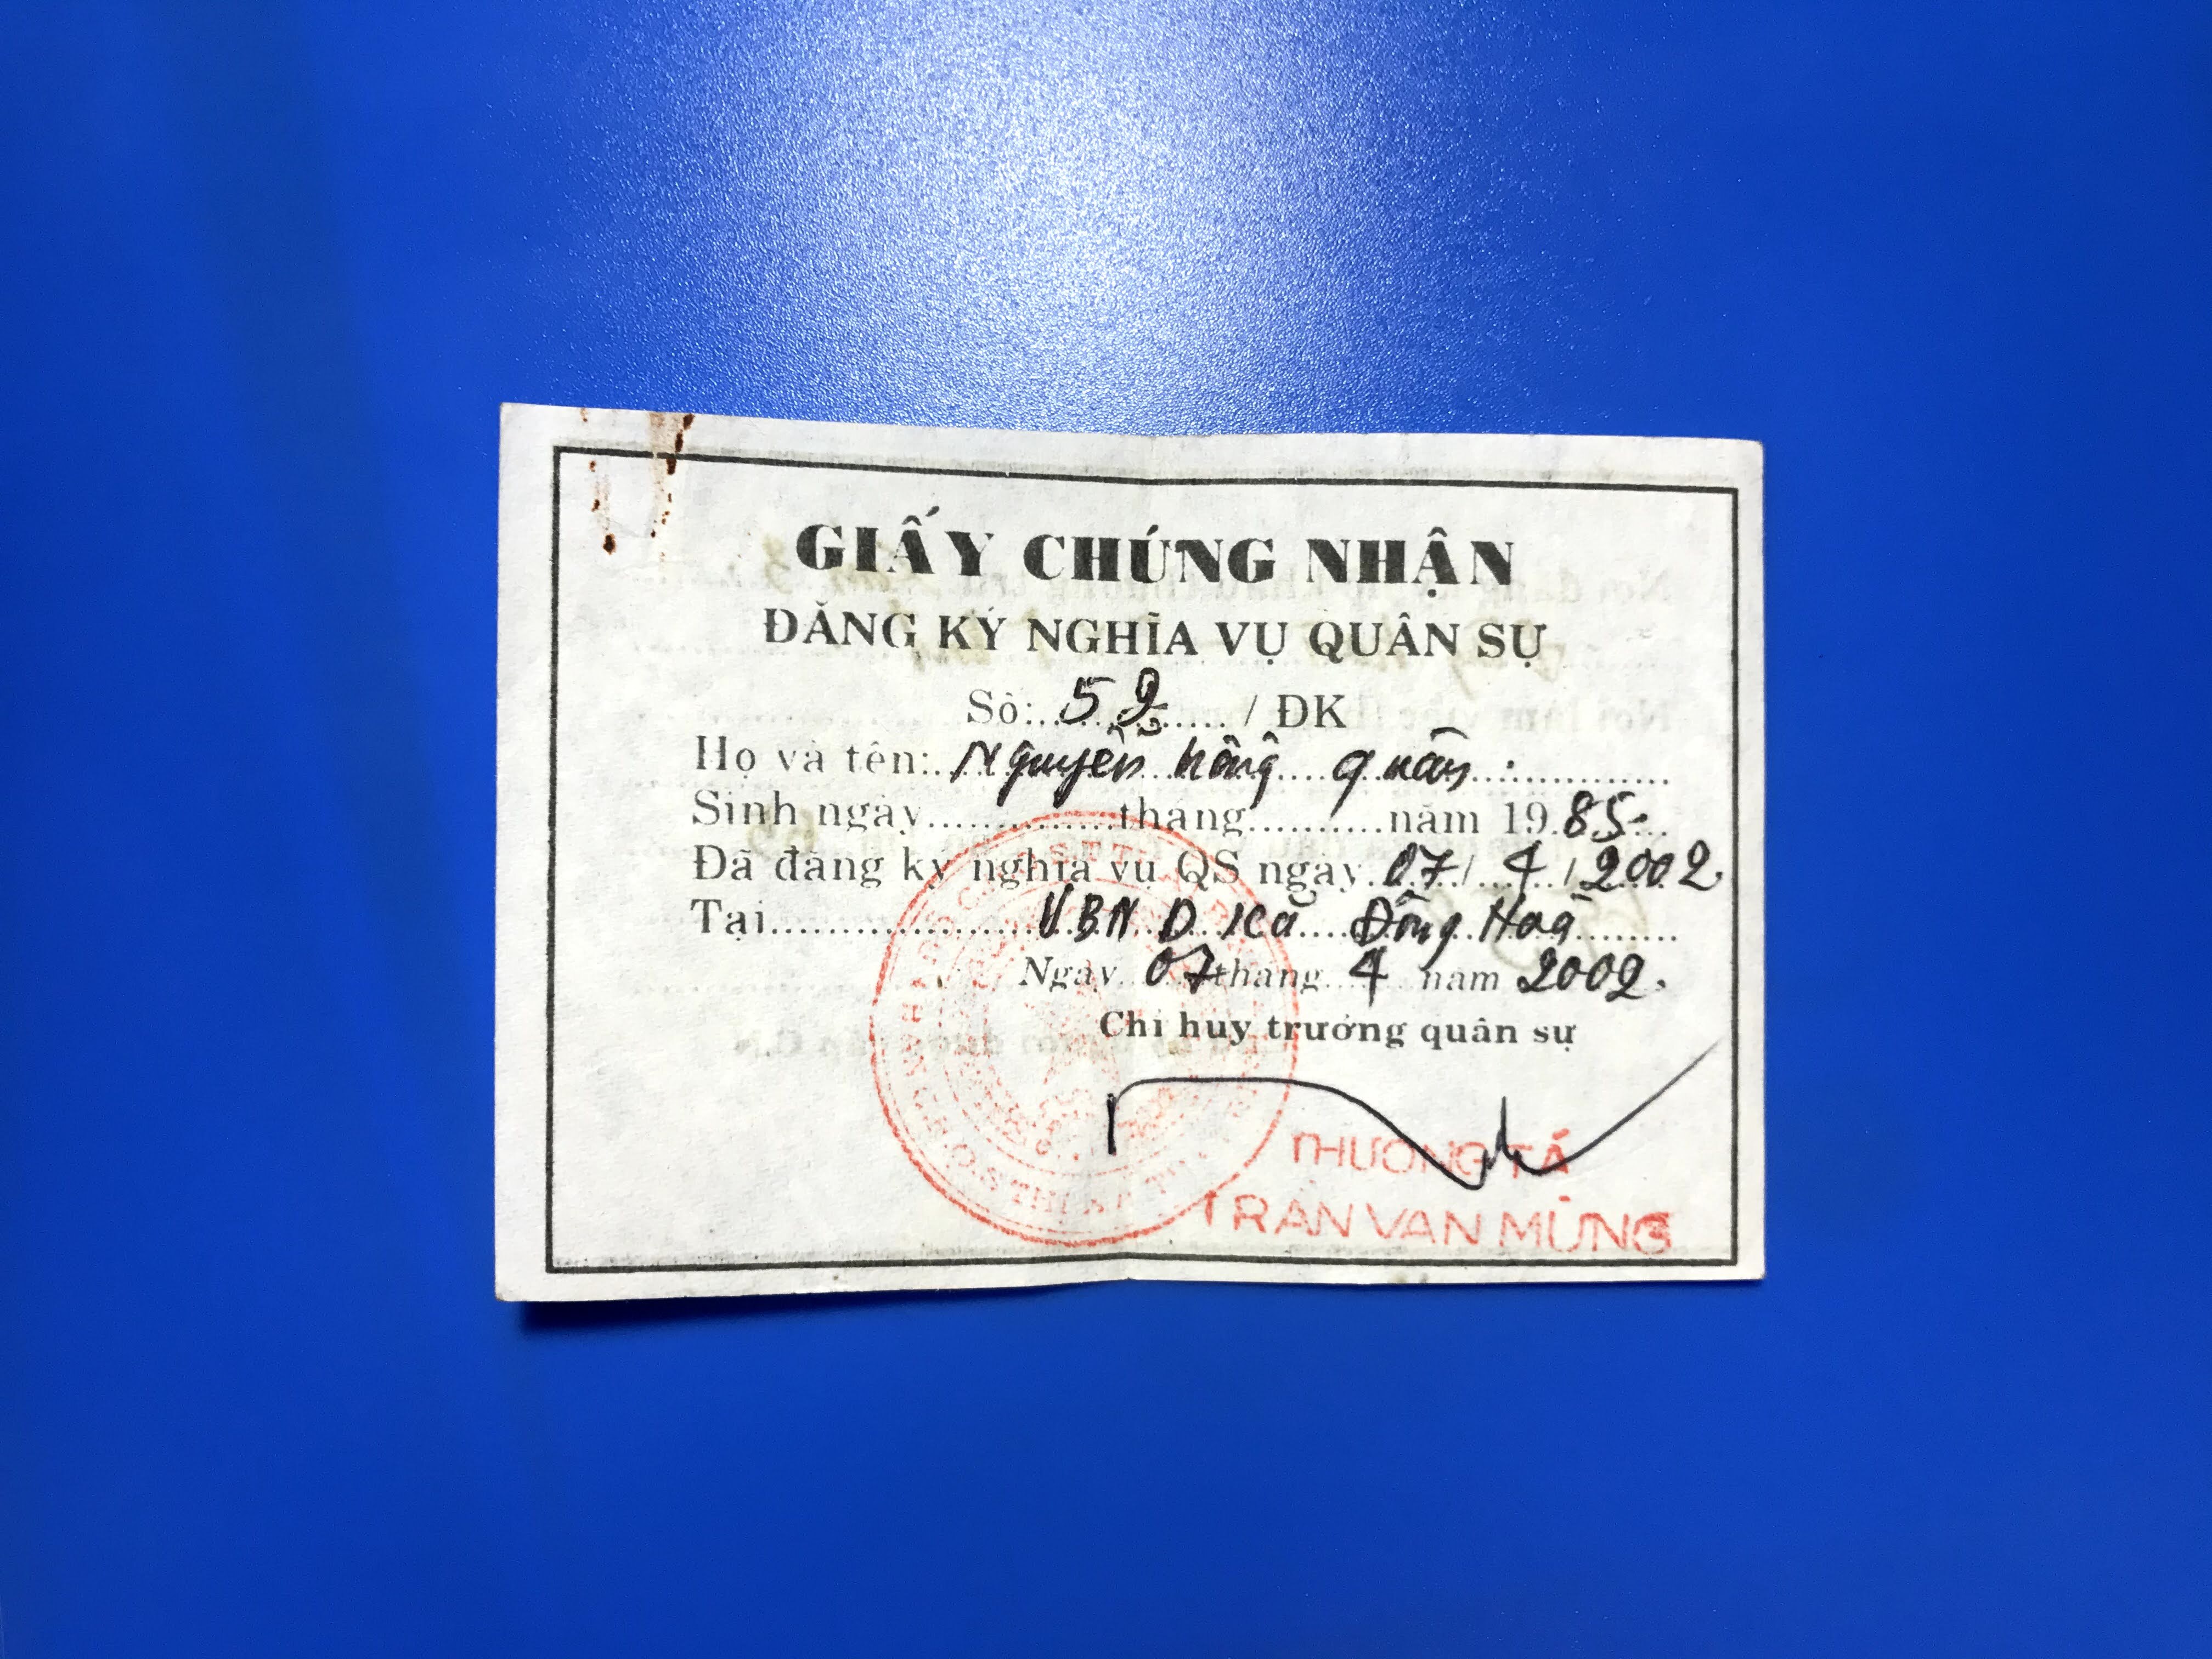 GIẤY CHỨNG NHẬN
ĐĂNG KÝ NGHĨA VỤ QUÂN SỰ
Số: 59 / ĐK
Họ và tên: Nguyen hồng quân
Sinh ngày tháng năm 1985
Đã đăng ký nghĩa vụ QS ngày 07/4/2002
Tại UBND Đông
Ngày 07 tháng 4 năm 2002.
Chỉ huy trưởng quân sự
THƯỢNG TÁ
TRẦN VĂN MỪNG